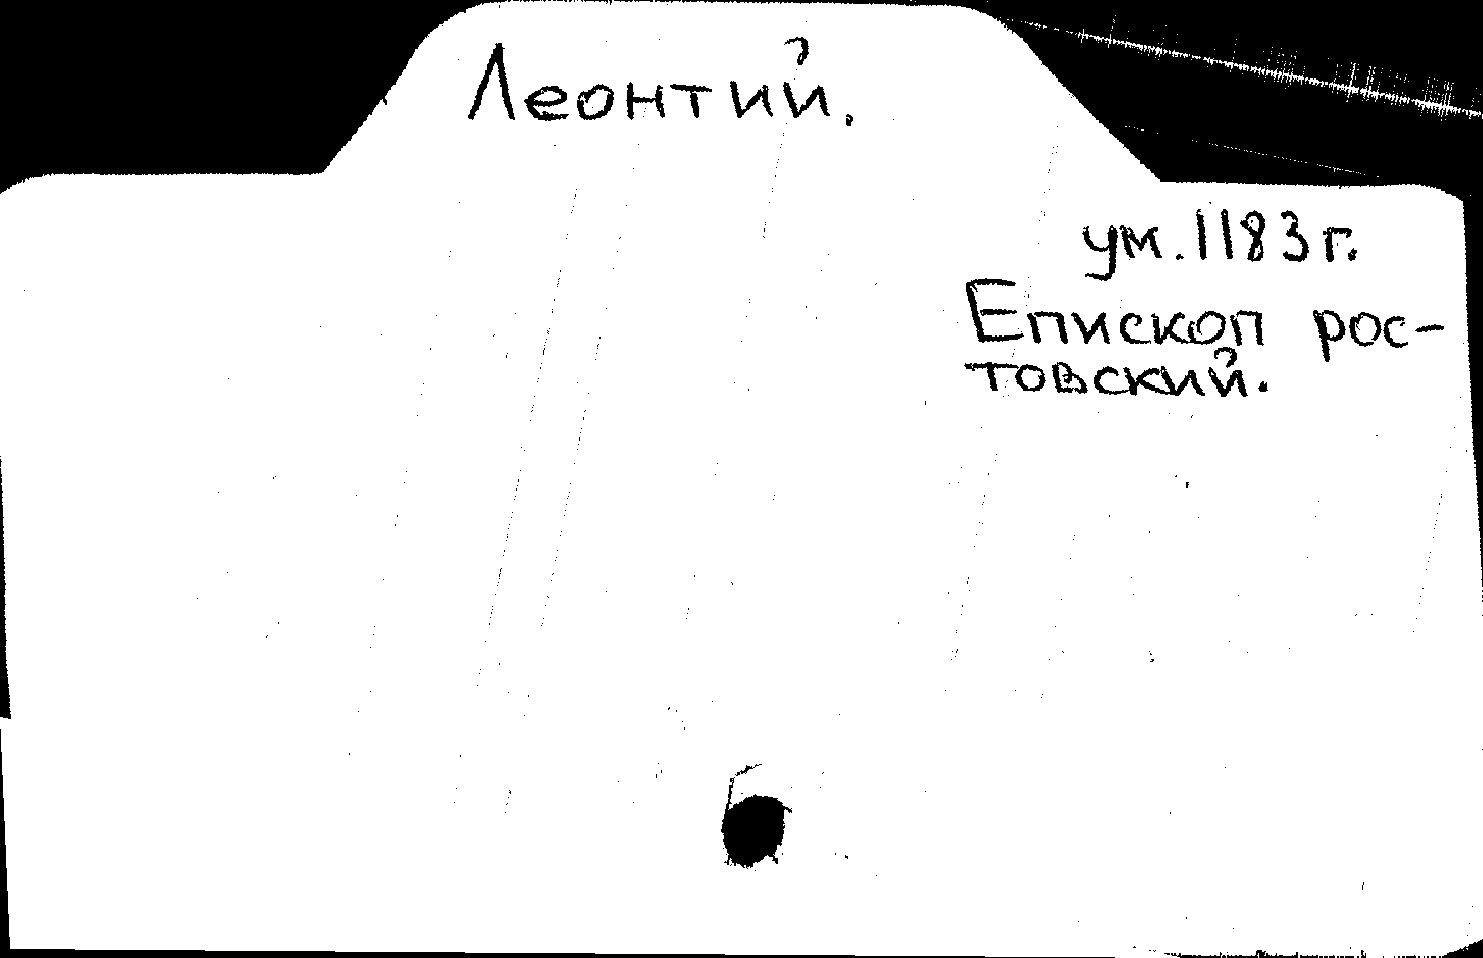 Леонтий.
ум. 1183 г.
Епископ рос-
товский.